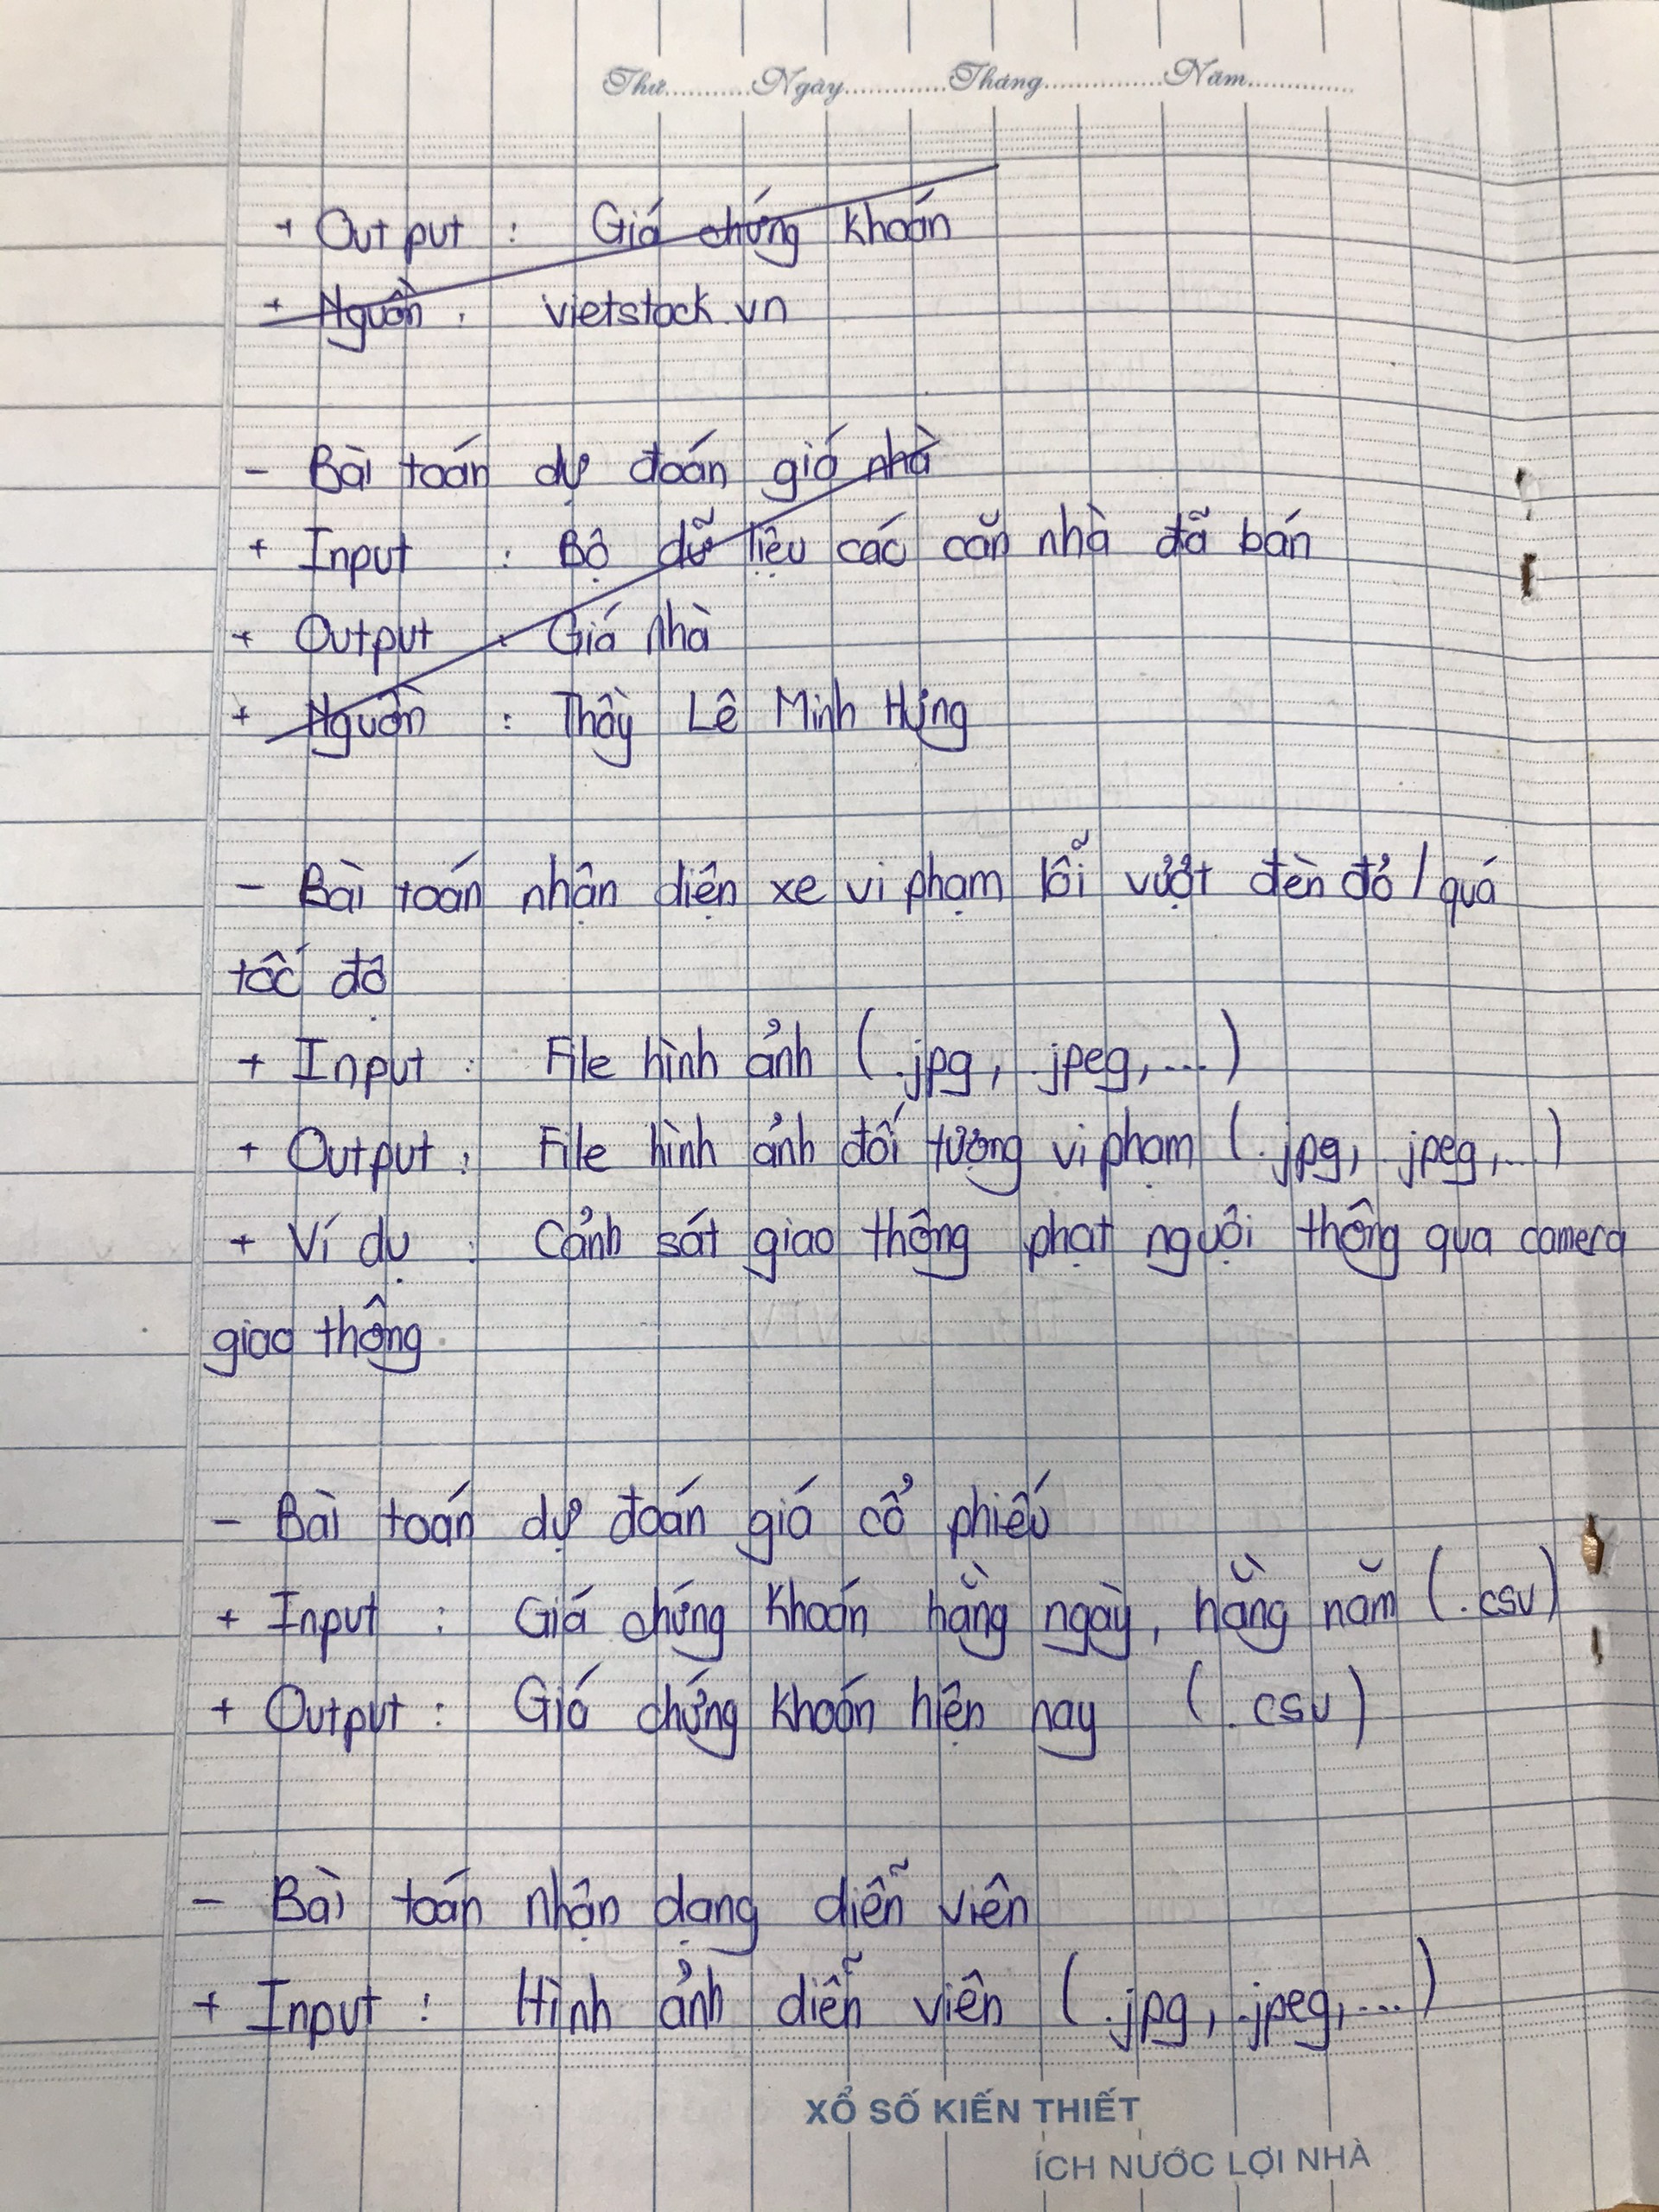 Thứ...........Ngày.............Tháng...............Năm.............
+ Output : Giá chứng khoán
+ Nguồn : vietstock.vn
- Bài toán dự đoán giá nhà
+ Input : Bộ dữ liệu các căn nhà đã bán
+ Output : Giá nhà
+ Nguồn : Thầy Lê Minh Hưng
- Bài toán nhận diện xe vi phạm lỗi vượt đèn đỏ / quá
tốc độ
+ Input : File hình ảnh (.jpg, .jpeg,...)
+ Output : File hình ảnh đối tượng vi phạm (.jpg, .jpeg,...)
+ Ví dụ : Cảnh sát giao thông phạt nguội thông qua camera
giao thông.
- Bài toán dự đoán giá cổ phiếu
+ Input : Giá chứng khoán hằng ngày, hằng năm (.csv)
+ Output : Giá chứng khoán hiện nay (.csv)
- Bài toán nhận dạng diễn viên
+ Input : Hình ảnh diễn viên (.jpg, .jpeg,...)
XỔ SỐ KIẾN THIẾT
ÍCH NƯỚC LỢI NHÀ